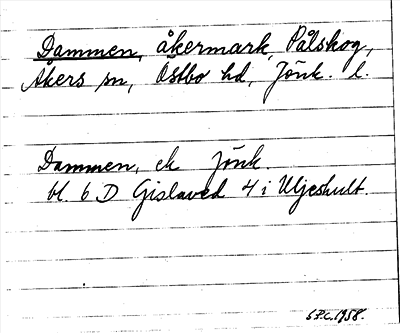 Dammen, åkermark, Pålskog,
Åkers sn, Östbo hd, Jönk. l.
Dammen, ek Jönk.
bl. 6 D Gislaved 4 i Uljeshult.
1958.